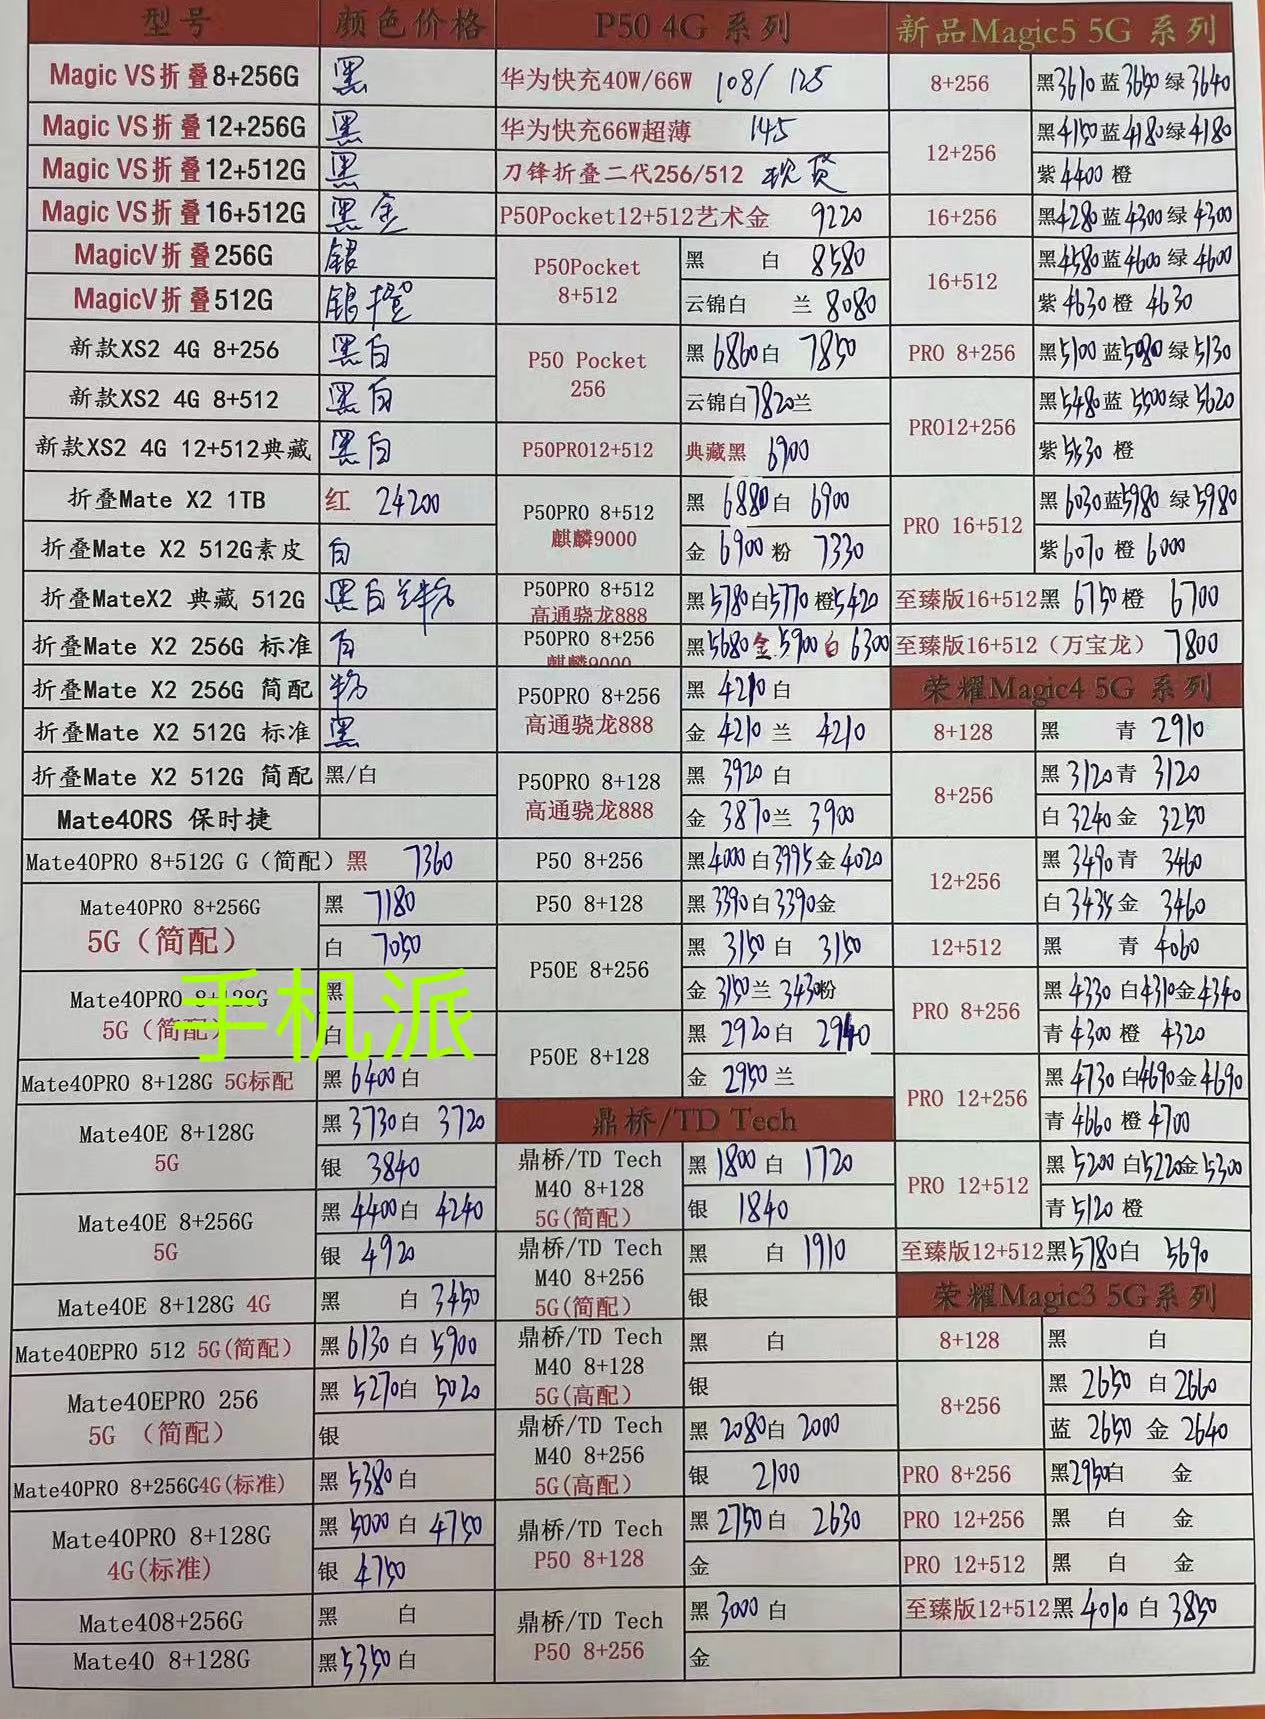 型号 颜色价格
Magic VS折叠8+256G 黑
Magic VS折叠12+256G 黑
Magic VS折叠12+512G 黑
Magic VS折叠16+512G 黑 金
MagicV折叠256G 银
MagicV折叠512G 银 橙
新款XS2 4G 8+256 黑白
新款XS2 4G 8+512 黑白
新款XS2 4G 12+512典藏 黑白
折叠Mate X2 1TB 红 24200
折叠Mate X2 512G素皮 白
折叠MateX2 典藏 512G 黑白兰粉
折叠Mate X2 256G 标准 白
折叠Mate X2 256G 简配 粉
折叠Mate X2 512G 标准 黑
折叠Mate X2 512G 简配 黑/白
Mate40RS 保时捷
Mate40PRO 8+512G G（简配）黑 7360
Mate40PRO 8+256G
5G（简配）
黑 7180
白 7050
Mate40PRO 8+128G
5G（简配）
黑
白
手机派
Mate40PRO 8+128G 5G标配 黑 6400 白
Mate40E 8+128G
5G
黑 3730 白 3720
银 3840
Mate40E 8+256G
5G
黑 4400 白 4240
银 4920
Mate40E 8+128G 4G 黑 白 3450
Mate40EPRO 512 5G(简配） 黑 6130 白 5900
Mate40EPRO 256
5G （简配）
黑 5270 白 5020
银
Mate40PRO 8+256G4G(标准) 黑 5380 白
Mate40PRO 8+128G
4G(标准)
黑 5000 白 4750
银 4750
Mate408+256G 黑 白
Mate40 8+128G 黑 5350 白
P50 4G 系列
华为快充40W/66W 108/ 125
华为快充66W超薄 145
刀锋折叠二代256/512 现货
P50Pocket12+512艺术金 9220
P50Pocket
8+512
黑 白 8580
云锦白 兰 8080
P50 Pocket
256
黑 6860 白 7850
云锦白 7820 兰
P50PRO12+512 典藏黑 6900
P50PRO 8+512
麒麟9000
黑 6880 白 6900
金 6900 粉 7330
P50PRO 8+512
高通骁龙888
黑 5780 白 5770 橙 5420
P50PRO 8+256
麒麟9000
黑 5680 金 5900 白 6300
P50PRO 8+256
高通骁龙888
黑 4210 白
金 4210 兰 4210
P50PRO 8+128
高通骁龙888
黑 3920 白
金 3870 兰 3900
P50 8+256 黑 4000 白 3995 金 4020
P50 8+128 黑 3390 白 3390 金
P50E 8+256
黑 3150 白 3150
金 3150 兰 3430 粉
P50E 8+128
黑 2920 白 2940
金 2950 兰
鼎桥/TD Tech
鼎桥/TD Tech
M40 8+128
5G(简配）
黑 1800 白 1720
银 1840
鼎桥/TD Tech
M40 8+256
5G(简配）
黑 白 1910
银
鼎桥/TD Tech
M40 8+128
5G(高配）
黑 白
银
鼎桥/TD Tech
M40 8+256
5G(高配）
黑 2080 白 2000
银 2100
鼎桥/TD Tech
P50 8+128
黑 2750 白 2630
金
鼎桥/TD Tech
P50 8+256
黑 3000 白
金
新品Magic5 5G 系列
8+256 黑 3610 蓝 3650 绿 3640
12+256
黑 4150 蓝 4180 绿 4180
紫 4400 橙
16+256 黑 4280 蓝 4300 绿 4300
16+512
黑 4580 蓝 4600 绿 4600
紫 4630 橙 4630
PRO 8+256 黑 5100 蓝 5080 绿 5130
PRO12+256
黑 5480 蓝 5500 绿 5620
紫 5530 橙
PRO 16+512
黑 6030 蓝 5980 绿 5980
紫 6070 橙 6000
至臻版16+512黑 6750 橙 6700
至臻版16+512（万宝龙） 7800
荣耀Magic4 5G 系列
8+128 黑 青 2910
8+256
黑 3120 青 3120
白 3240 金 3250
12+256
黑 3490 青 3460
白 3435 金 3460
12+512 黑 青 4060
PRO 8+256
黑 4330 白 4310 金 4340
青 4300 橙 4320
PRO 12+256
黑 4730 白 4690 金 4690
青 4660 橙 4700
PRO 12+512
黑 5200 白 5220 金 5300
青 5120 橙
至臻版12+512黑 5780 白 5690
荣耀Magic3 5G系列
8+128 黑 白
8+256
黑 2650 白 2660
蓝 2650 金 2640
PRO 8+256 黑 2950 白 金
PRO 12+256 黑 白 金
PRO 12+512 黑 白 金
至臻版12+512黑 4010 白 3850